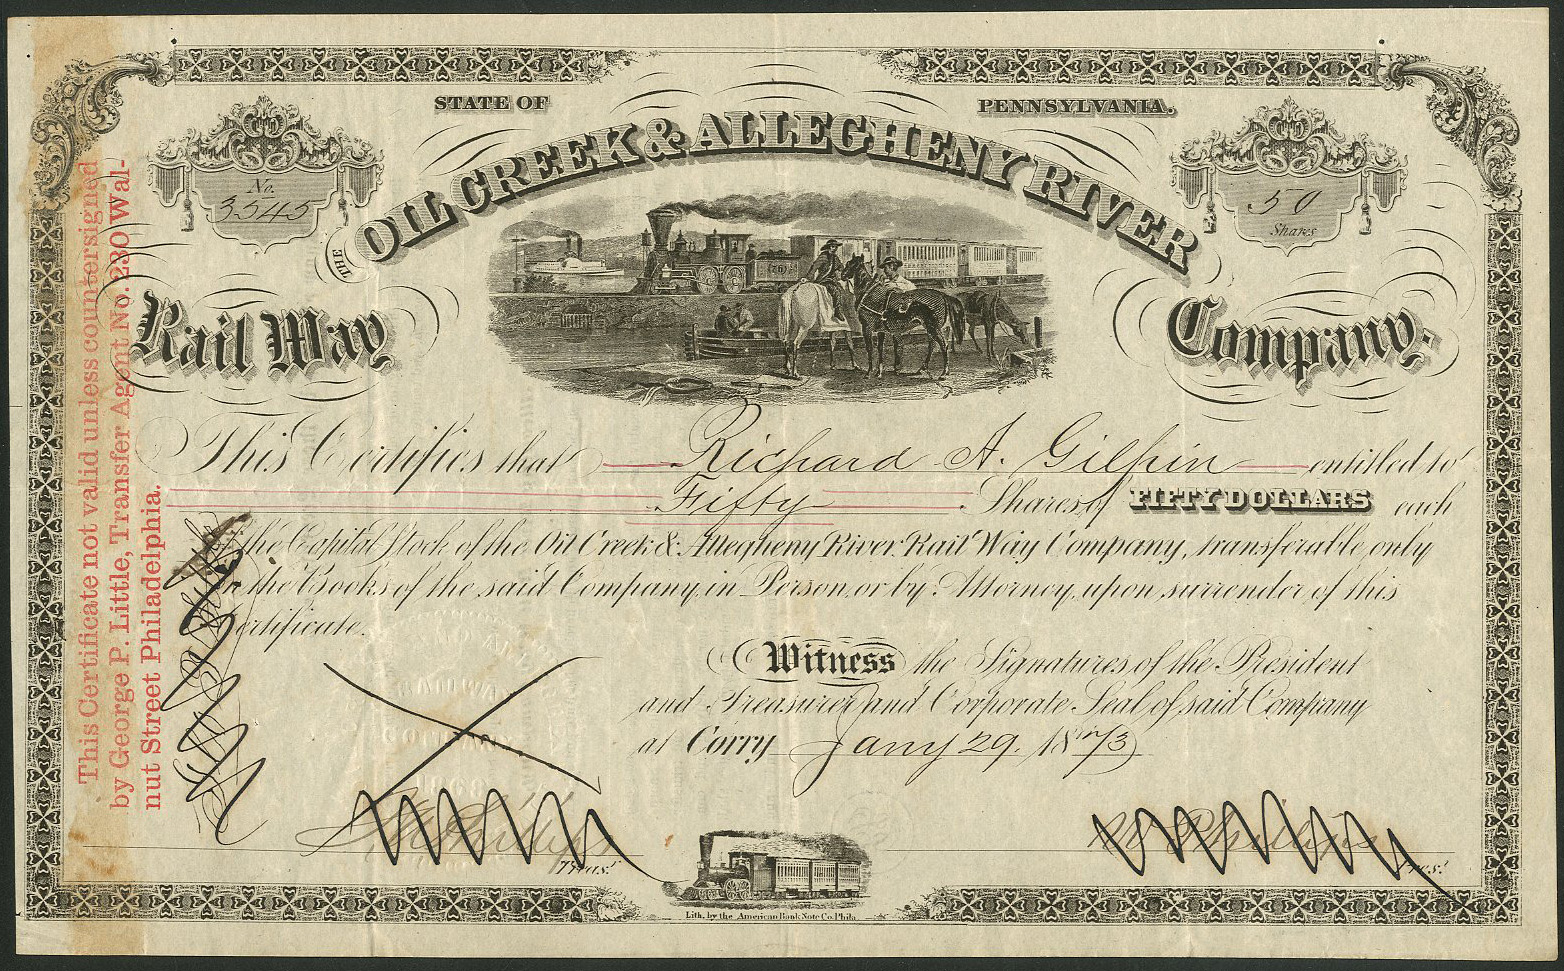 STATE OF PENNSYLVANIA.
No. 3545
50 Shares
THE OIL CREEK & ALLEGHENY RIVER
Rail Way Company.
This Certifies that Richard A. Gilpin entitled to
Fifty Shares of FIFTY DOLLARS each
the Capital Stock of the Oil Creek & Allegheny River Rail Way Company, transferable only
the Books of the said Company, in Person, or by Attorney, upon surrender of this
Certificate.
Witness the Signatures of the President
and Treasurer and Corporate Seal of said Company
at Corry Jany 29. 1873
Treas.r
Pres.t
Lith. by the American Bank Note Co. Phila.
This Certificate not valid unless countersigned
by George P. Little, Transfer Agent No. 230 Wal-
nut Street Philadelphia.